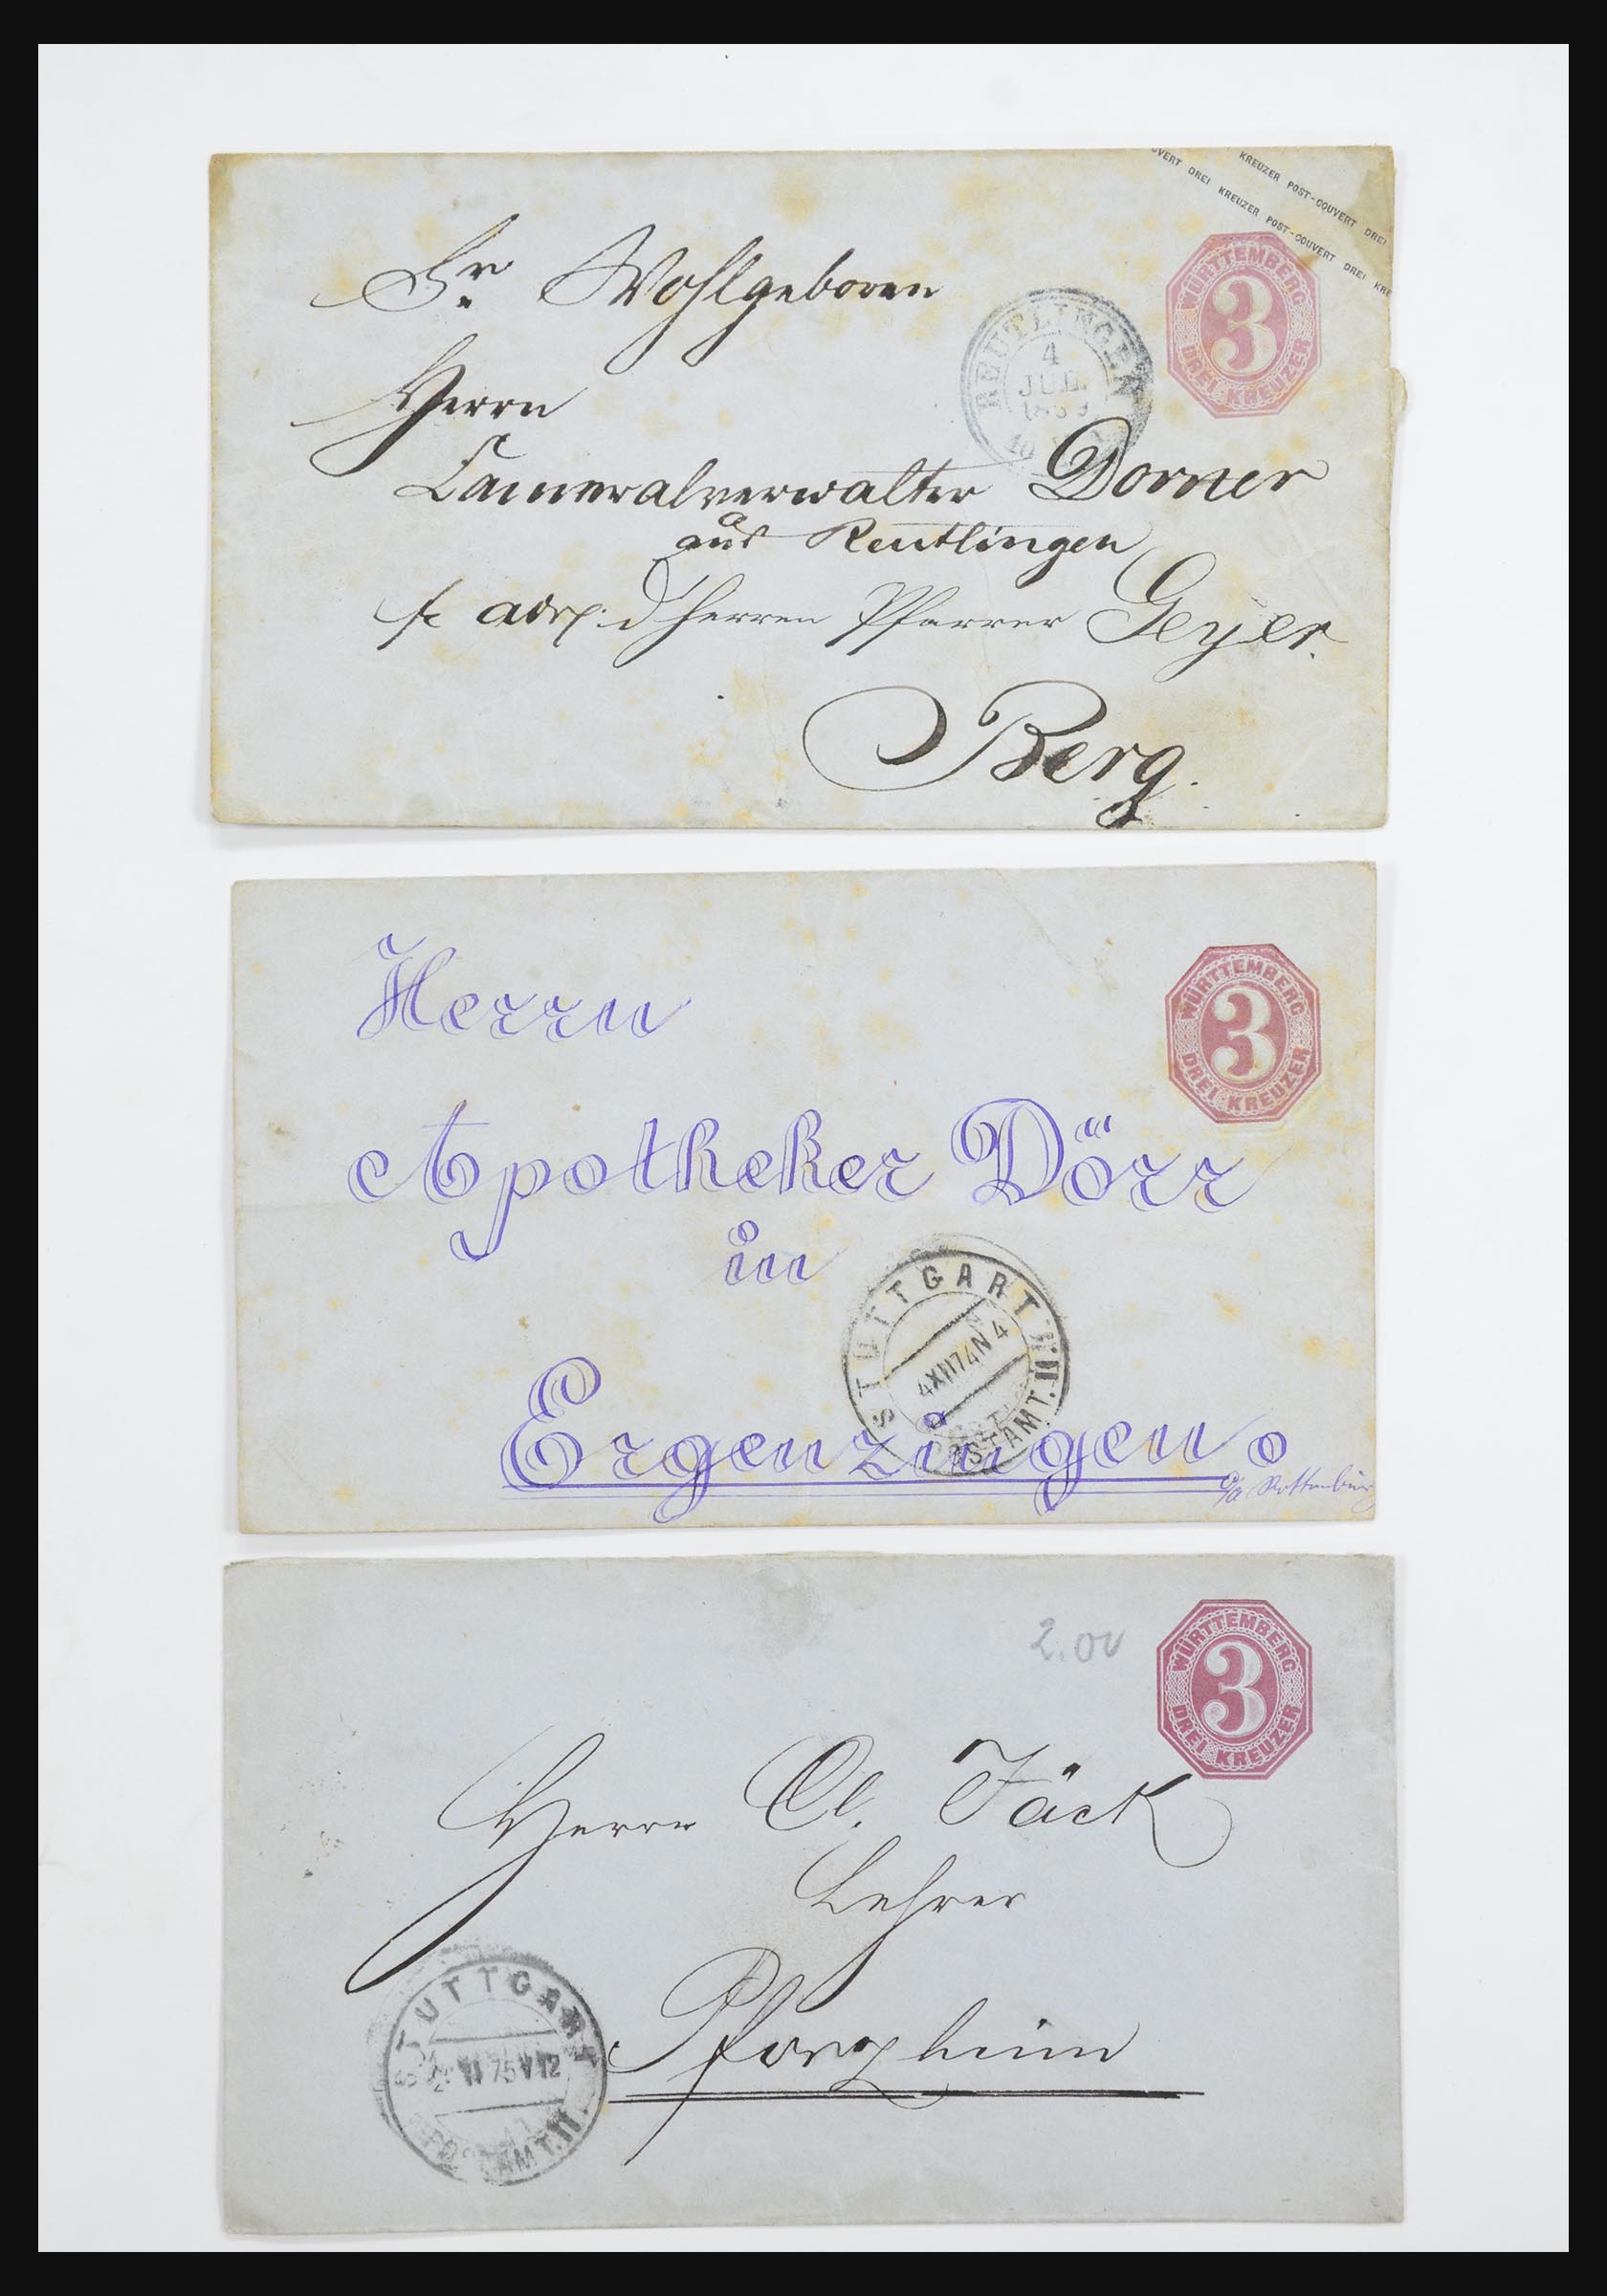 UVERT DREI KREUZER POST-COUVERT DREI KRE
KREUZER POST-COUVERT DREI
WÜRTTEMBERG
3
DREI KREUZER
Sr. Wohlgeboren
REUTLINGEN
4
JUL
Herrn
Cameralverwalter Dorner
aus Reutlingen
p. adr. d Herren Pfarrer Geyer.
Berg.
WÜRTTEMBERG
3
DREI KREUZER
Herrn
Apotheker Dörr
in
STUTTGART
4 XII 74 N 4
POSTAMT. II.
Ergenzingen.
o/a Rottenburg
WÜRTTEMBERG
3
DREI KREUZER
2.00
Herrn Cl. Jäck
Lehrer
Pforzheim
STUTTGART
VI 75 V 12
POSTAMT. II.